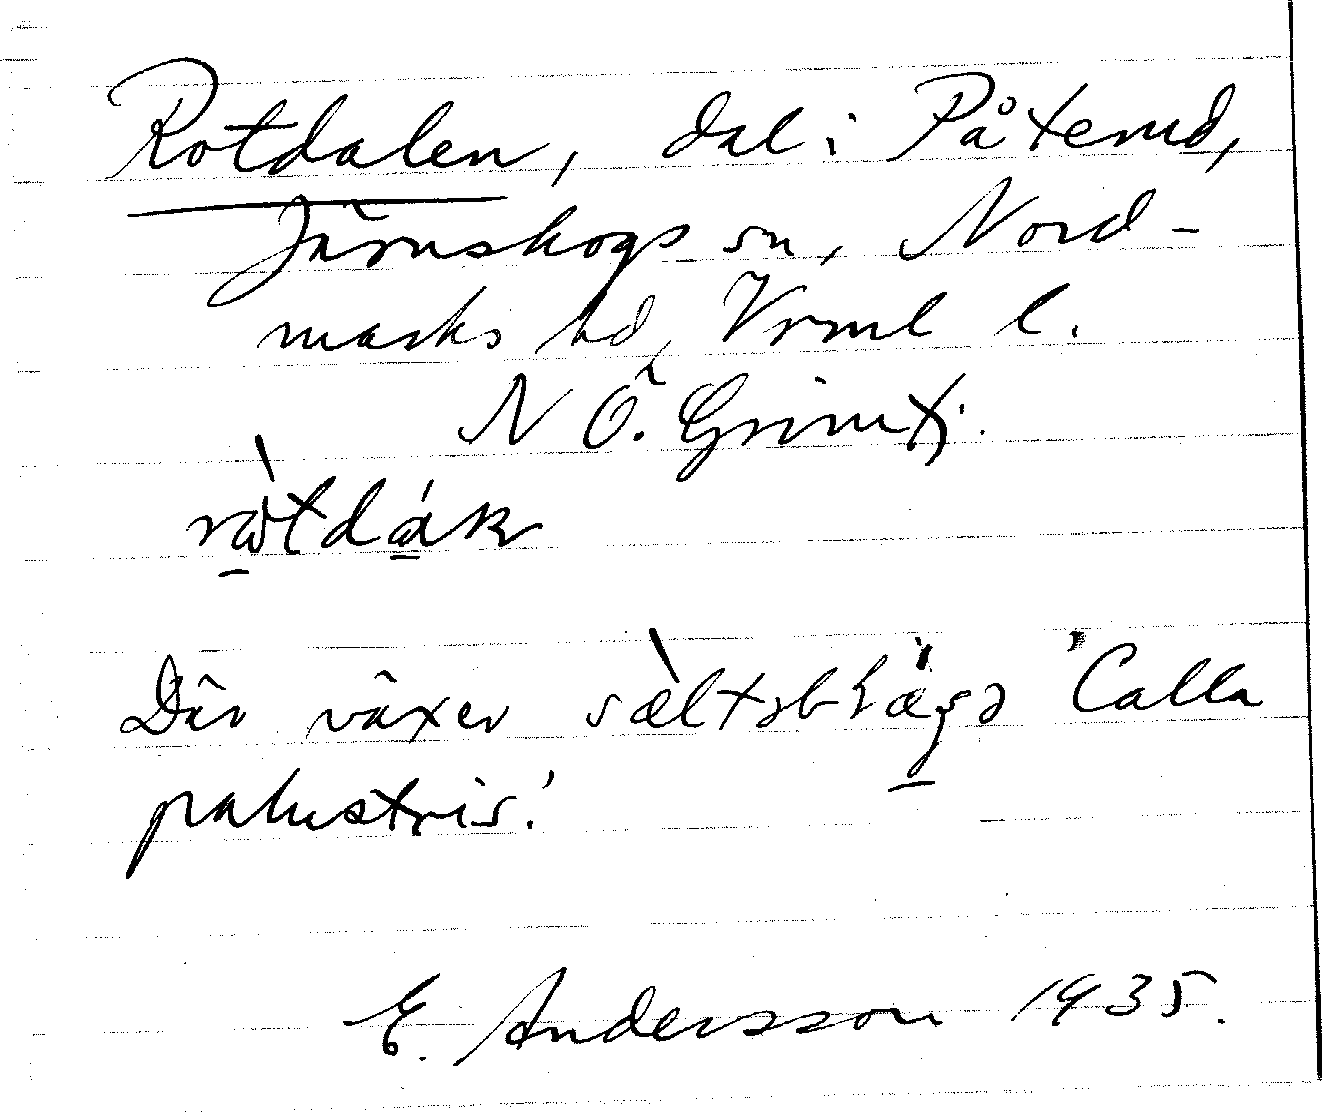 Rotdalen, dal i Påterud,
Järnskogs sn, Nord-
marks hd, Vrml l.
N Ö. Grimtj.
Där växer Calla
palustris.'
E. Andersson 1935.